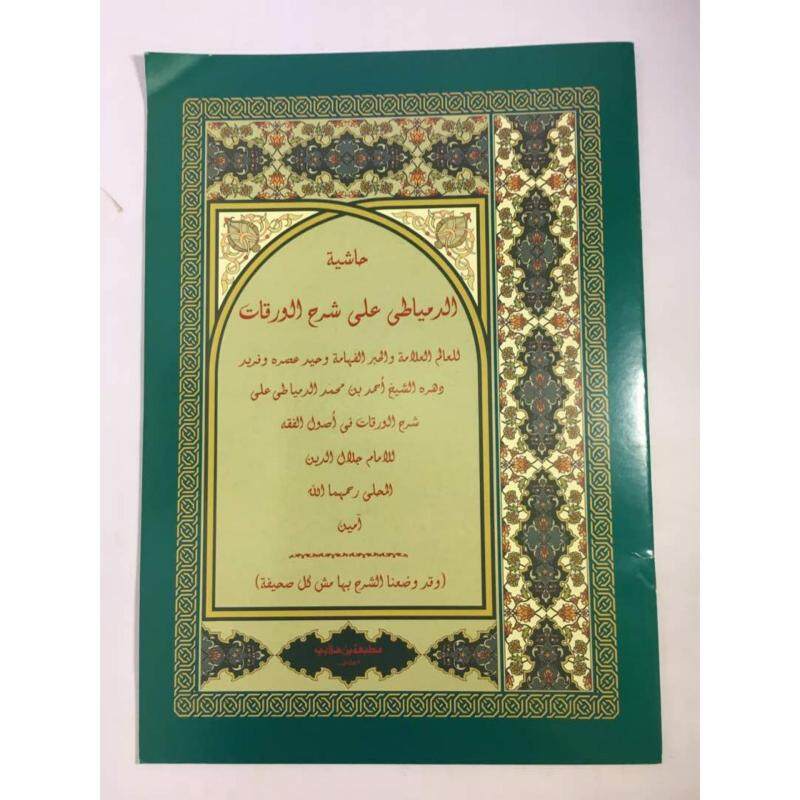 حاشية
الدمياطى على شرح الورقات
للعالم العلامة والحبر الفهامة وحيد عصره وفريد
دهره الشيخ أحمد بن محمد الدمياطى على
شرح الورقات فى أصول الفقه
للامام جلال الدين
المحلى رحمهما الله
آمين
(وقد وضعنا الشرح بهامش كل صحيفة)
مطبعة بن